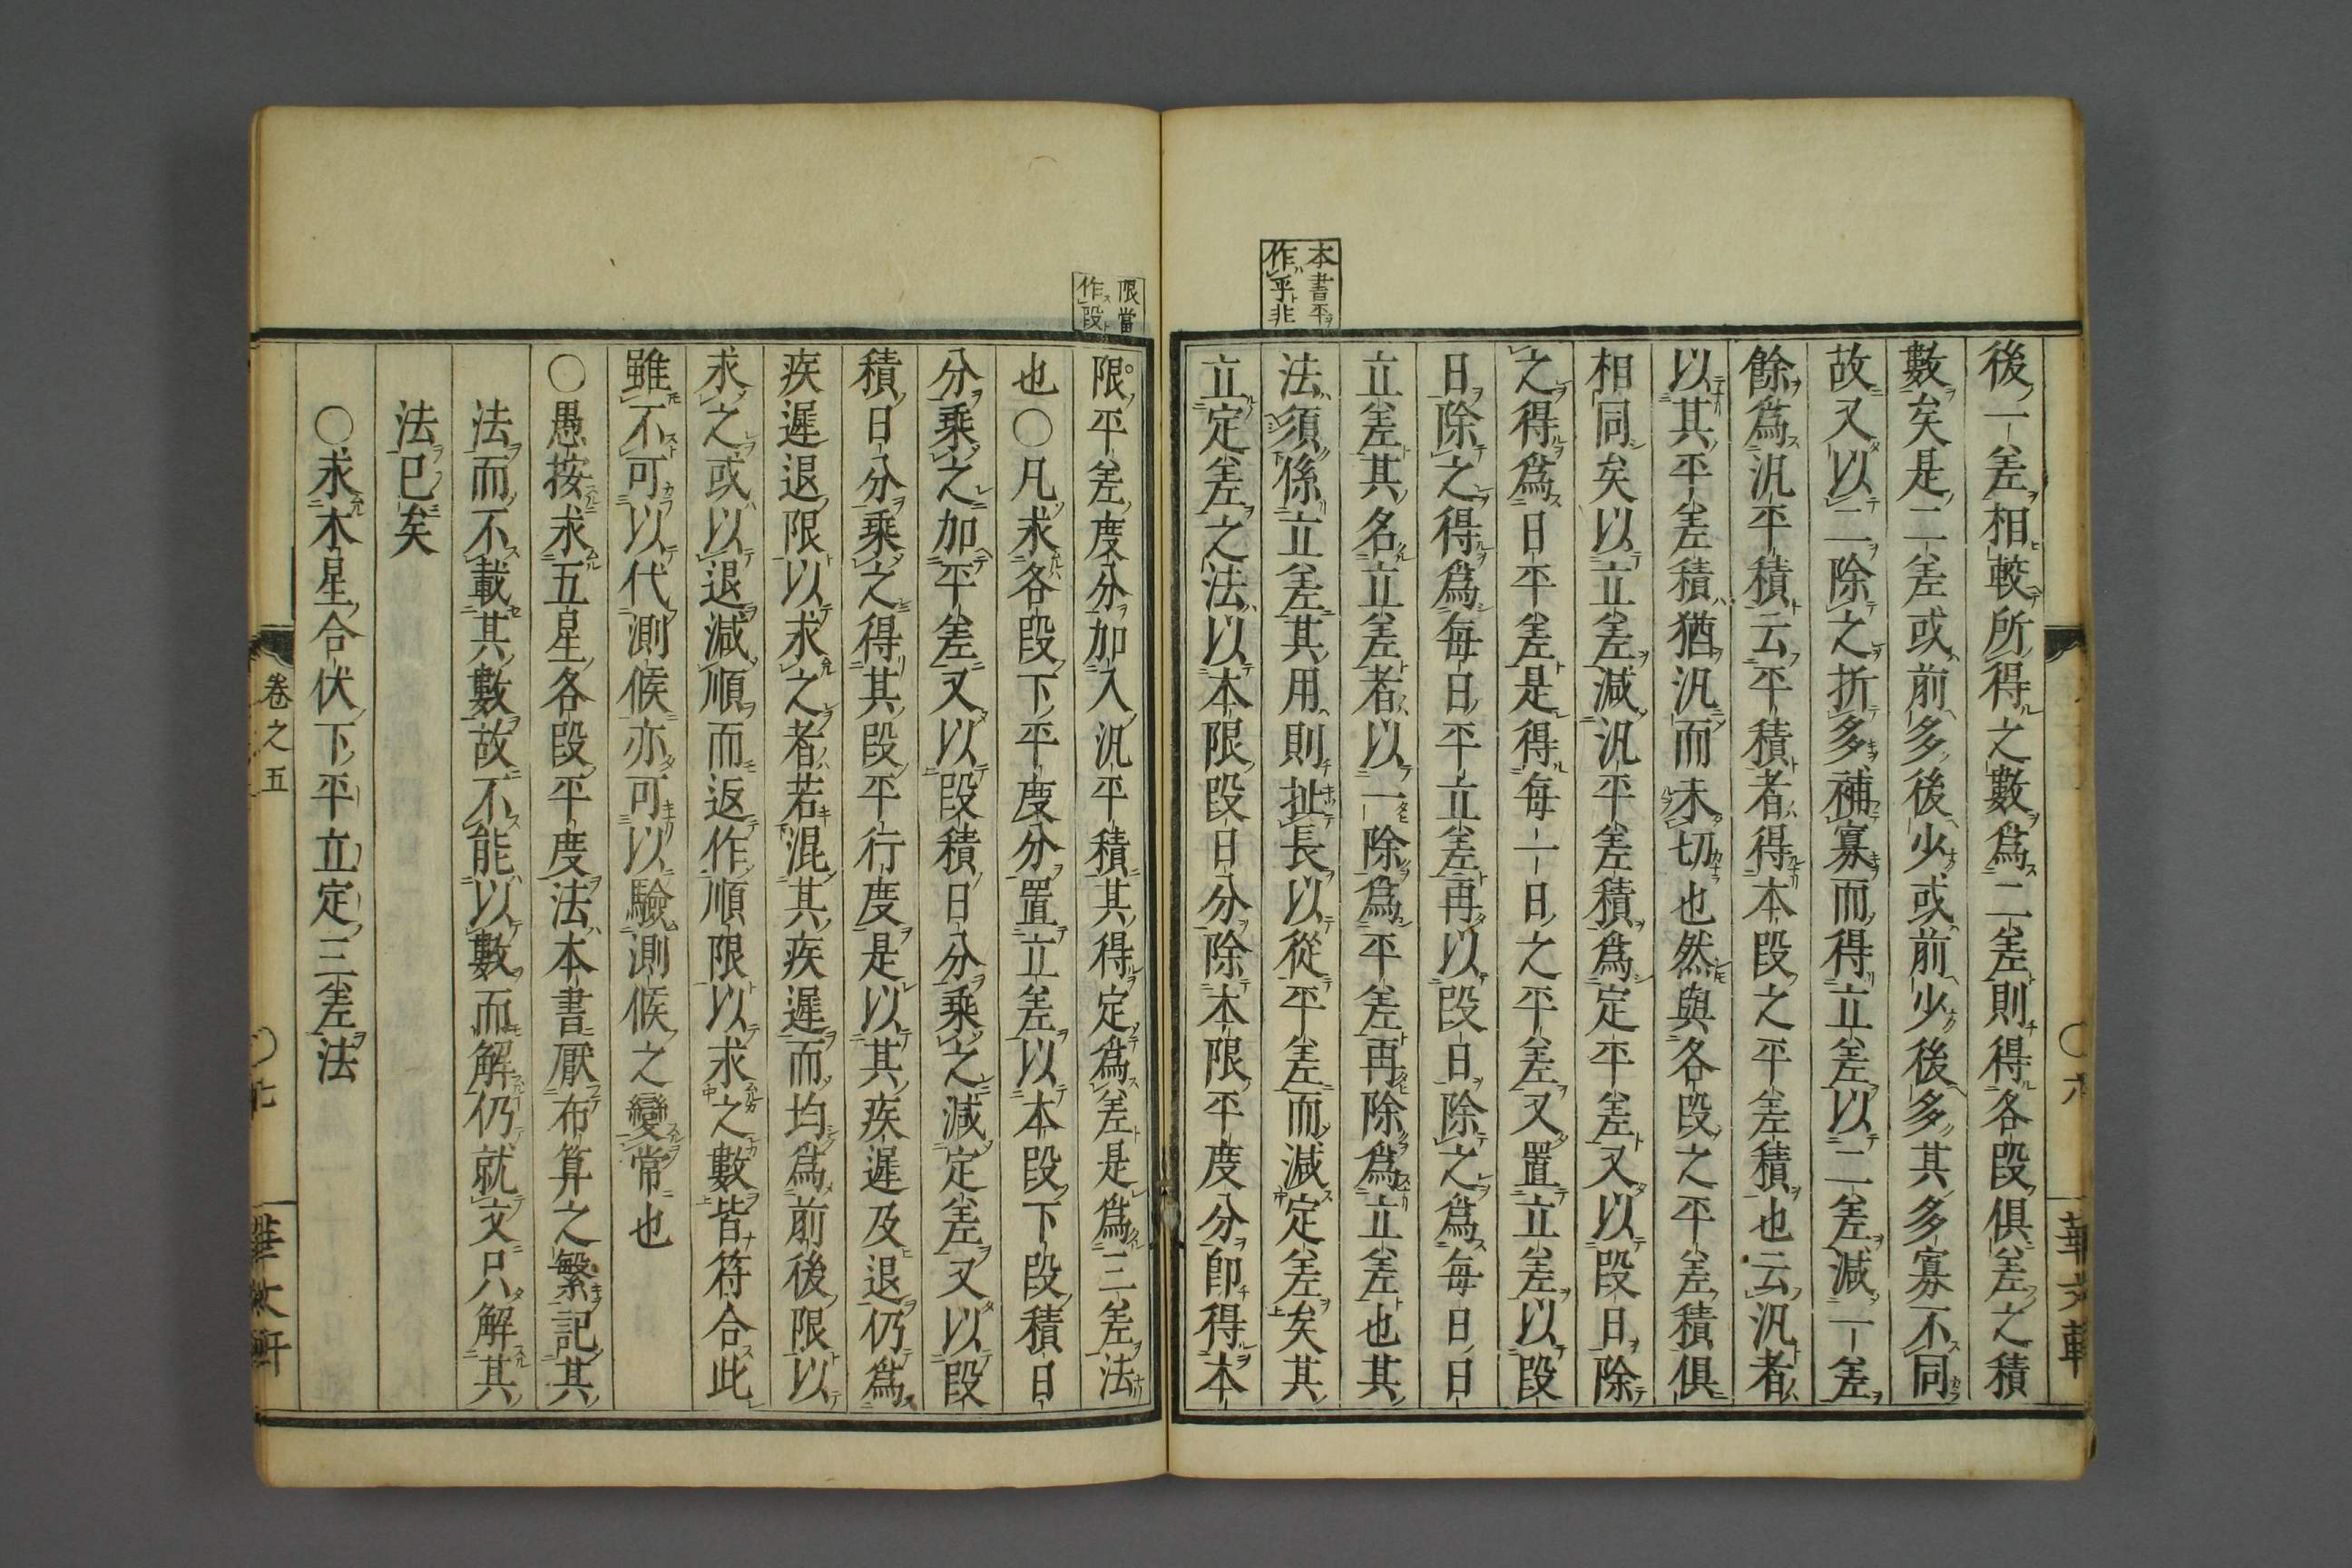 本書平
作乎非
後一差相較所得之數爲二差則得各段俱差之積
數矣是二差或前多後少或前少後多其多寡不同
故又以二除之折多補寡而得立差以二差減一差
餘爲汎平積云平積者得本段之平差積也云汎者
以其平差積猶汎而未切也然與各段之平差積俱
相同矣以立差減汎平差積爲定平差又以段日除
之得爲日平差是得每一日之平差又置立差以段
日除之得爲每日平立差再以段日除之爲每日日
立差其名立差者以一除爲平差再除爲立差也其
法須係立差其用則扯長以從平差而減定差矣其
立定差之法以本限段日分除本限平度分卽得本
限當
作段
限平差度分加入汎平積其得定爲差是爲三差法
也○凡求各段下平度分置立差以本段下段積日
分乘之加平差又以段積日分乘之減定差又以段
積日分乘之得其段平行度是以其疾遲及退仍爲
疾遲退限以求之者若混其疾遲而均爲前後限以
求之或以退減順而返作順限以求之數皆符合此
雖不可以代測候亦可以驗測候之變常也
○愚按求五星各段平度法本書厭布算之繁記其
法而不載其數故不能以數而解仍就文只解其
法已矣
○求木星合伏下平立定三差法
卷之五